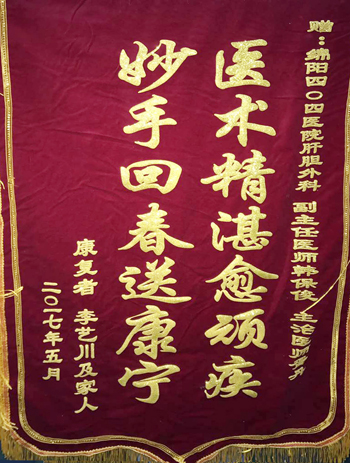 赠：绵阳四〇四医院肝胆外科 副主任医师韩保俊 主治医师
医术精湛愈顽疾
妙手回春送康宁
康复者 李艺川及家人
二〇一七年五月